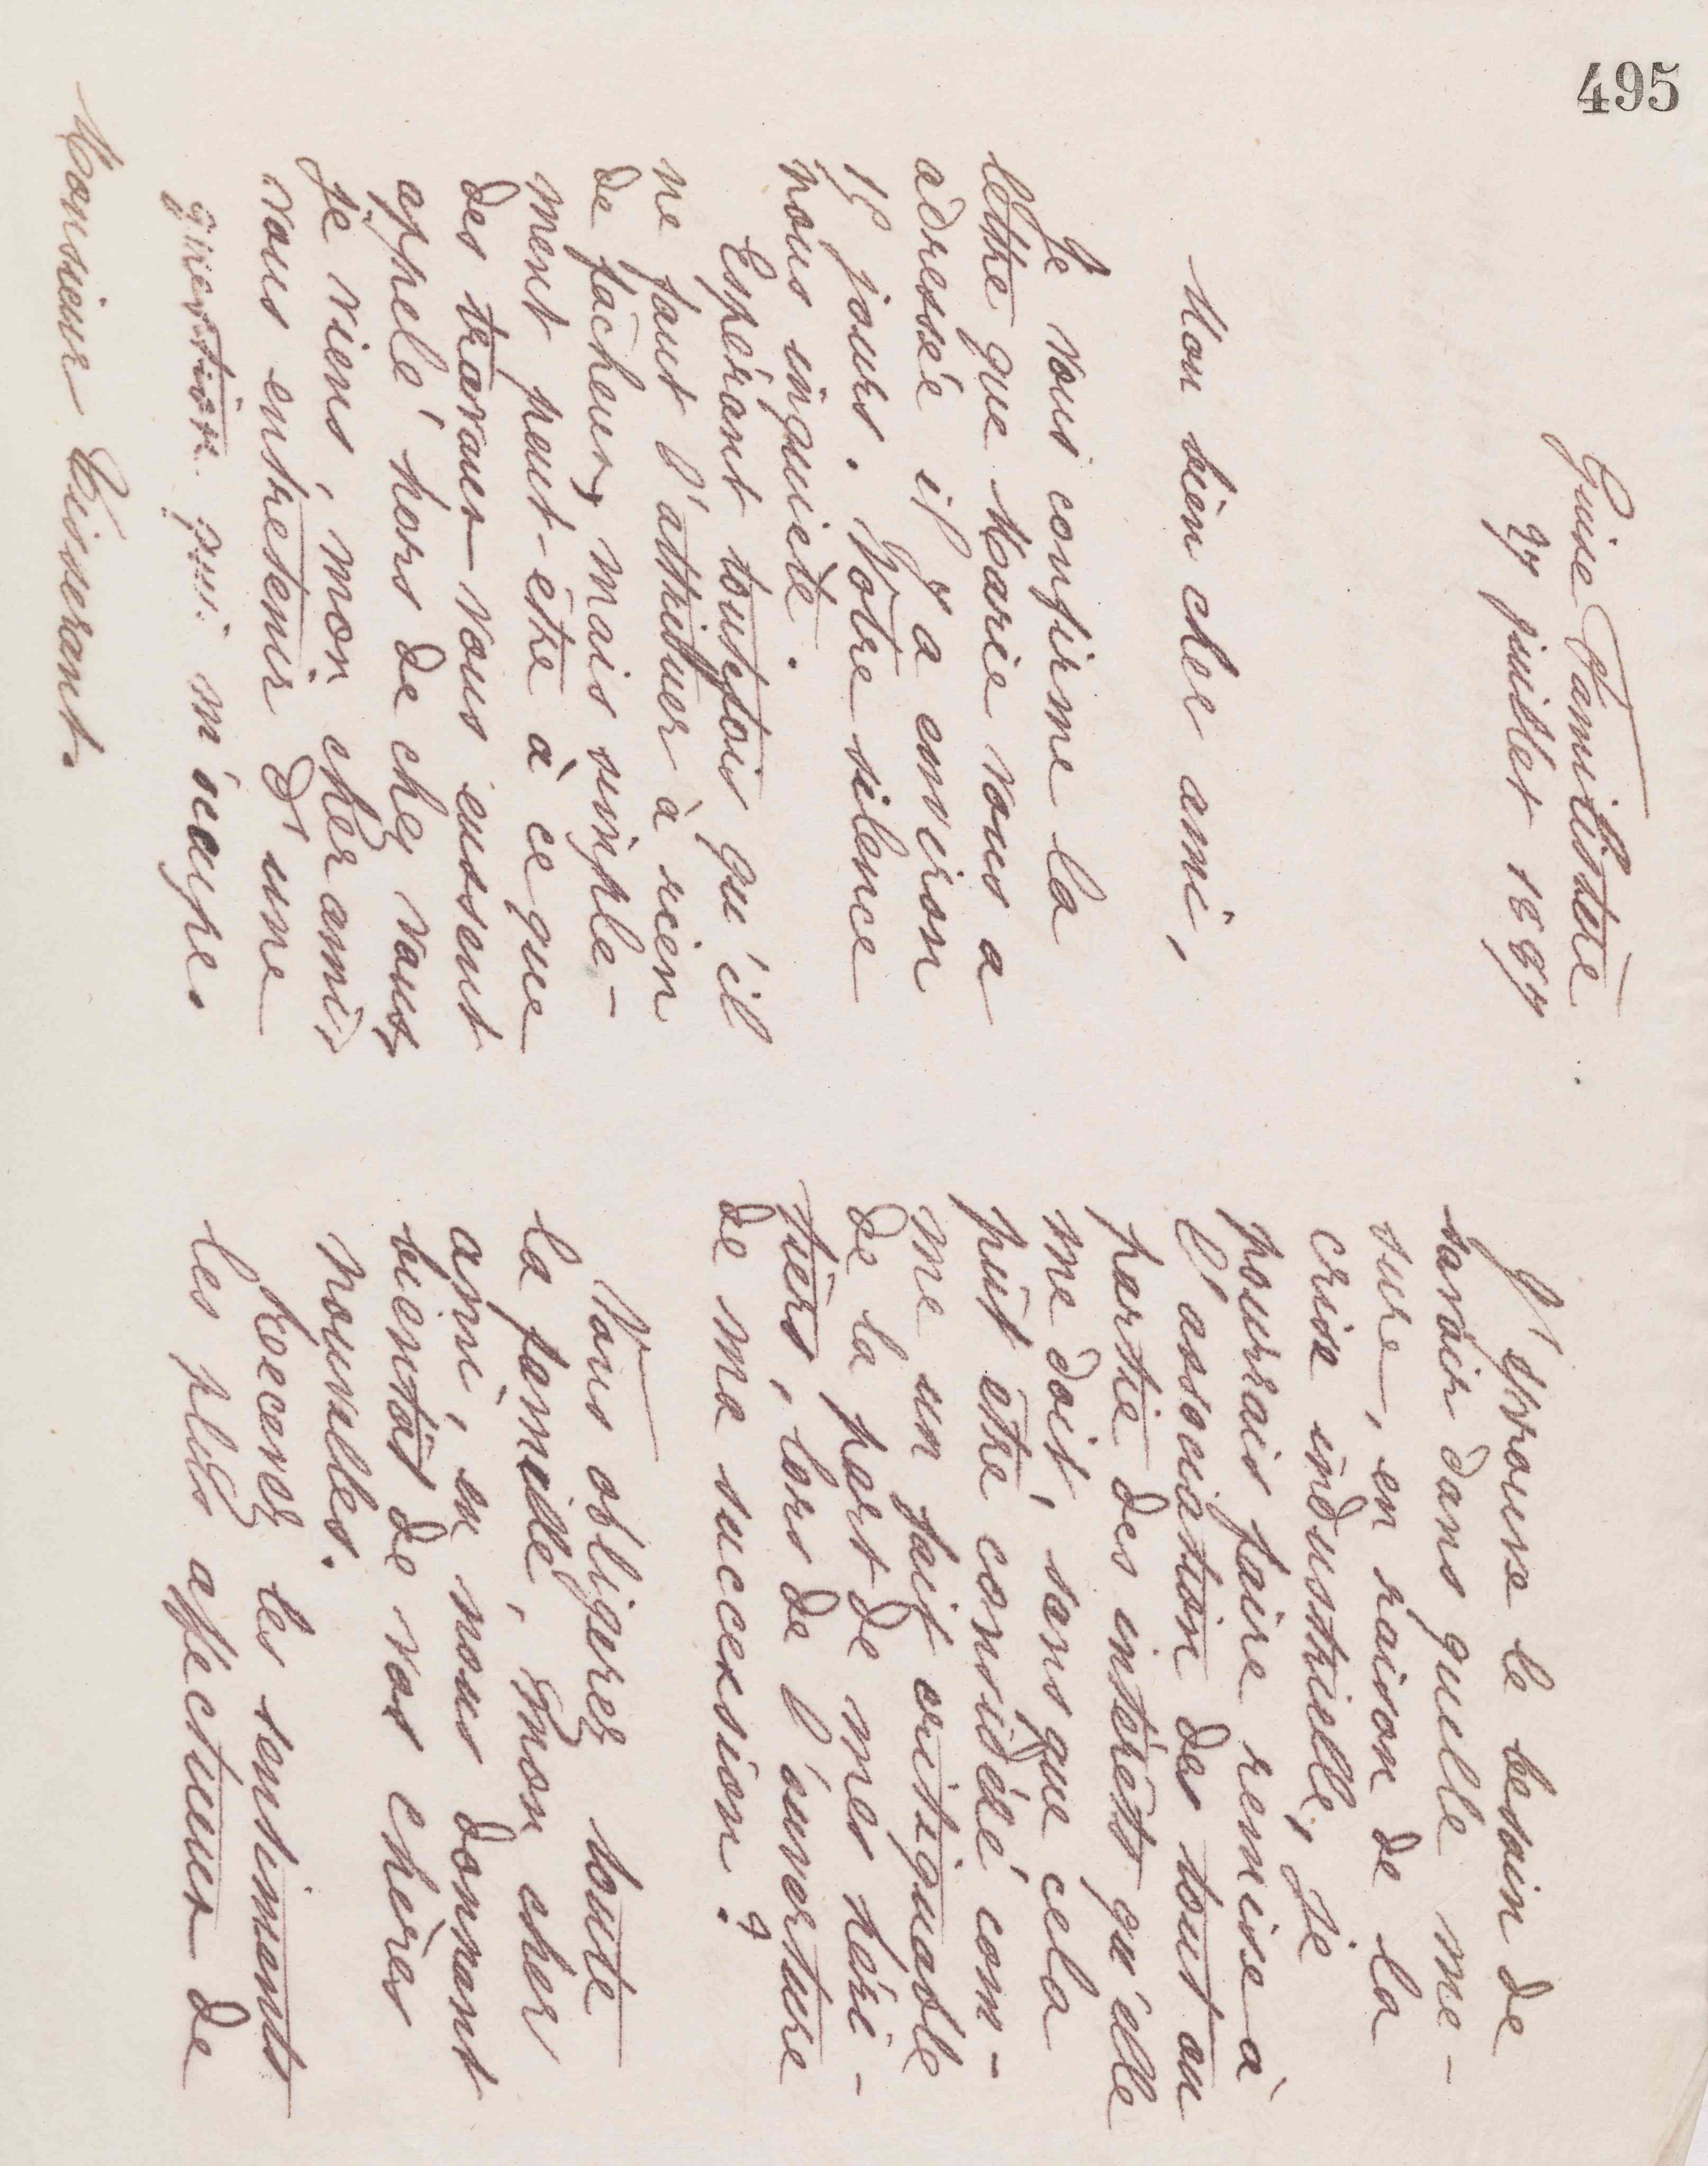 495
Guise Familistère
27 juillet 1887
Mon bien cher ami,
Je vous confirme la
lettre que Marie vous a
adressée il y a environ
15 jours. Votre silence
nous inquiète.
Espérant toutefois qu'il
ne faut l'attribuer à rien
de fâcheux, mais simple-
ment peut-être à ce que
des travaux vous eussent
appelé hors de chez vous,
je viens, mon cher ami,
vous entretenir d'une
question qui m'occupe.
Monsieur Tisserant.
J'éprouve le besoin de
savoir dans quelle me-
sure, en raison de la
crise industrielle, je
pourrais faire remise à
l'association des tout ou
partie des intérêts qu'elle
me doit, sans que cela
pût être considéré com-
me un fait critiquable
de la part de mes héri-
tiers, lors de l'ouverture
de ma succession ?
Vous obligerez toute
la famille, mon cher
ami, en nous donnant
bientôt de vos chères
nouvelles.
Recevez les sentiments
les plus affectueux de